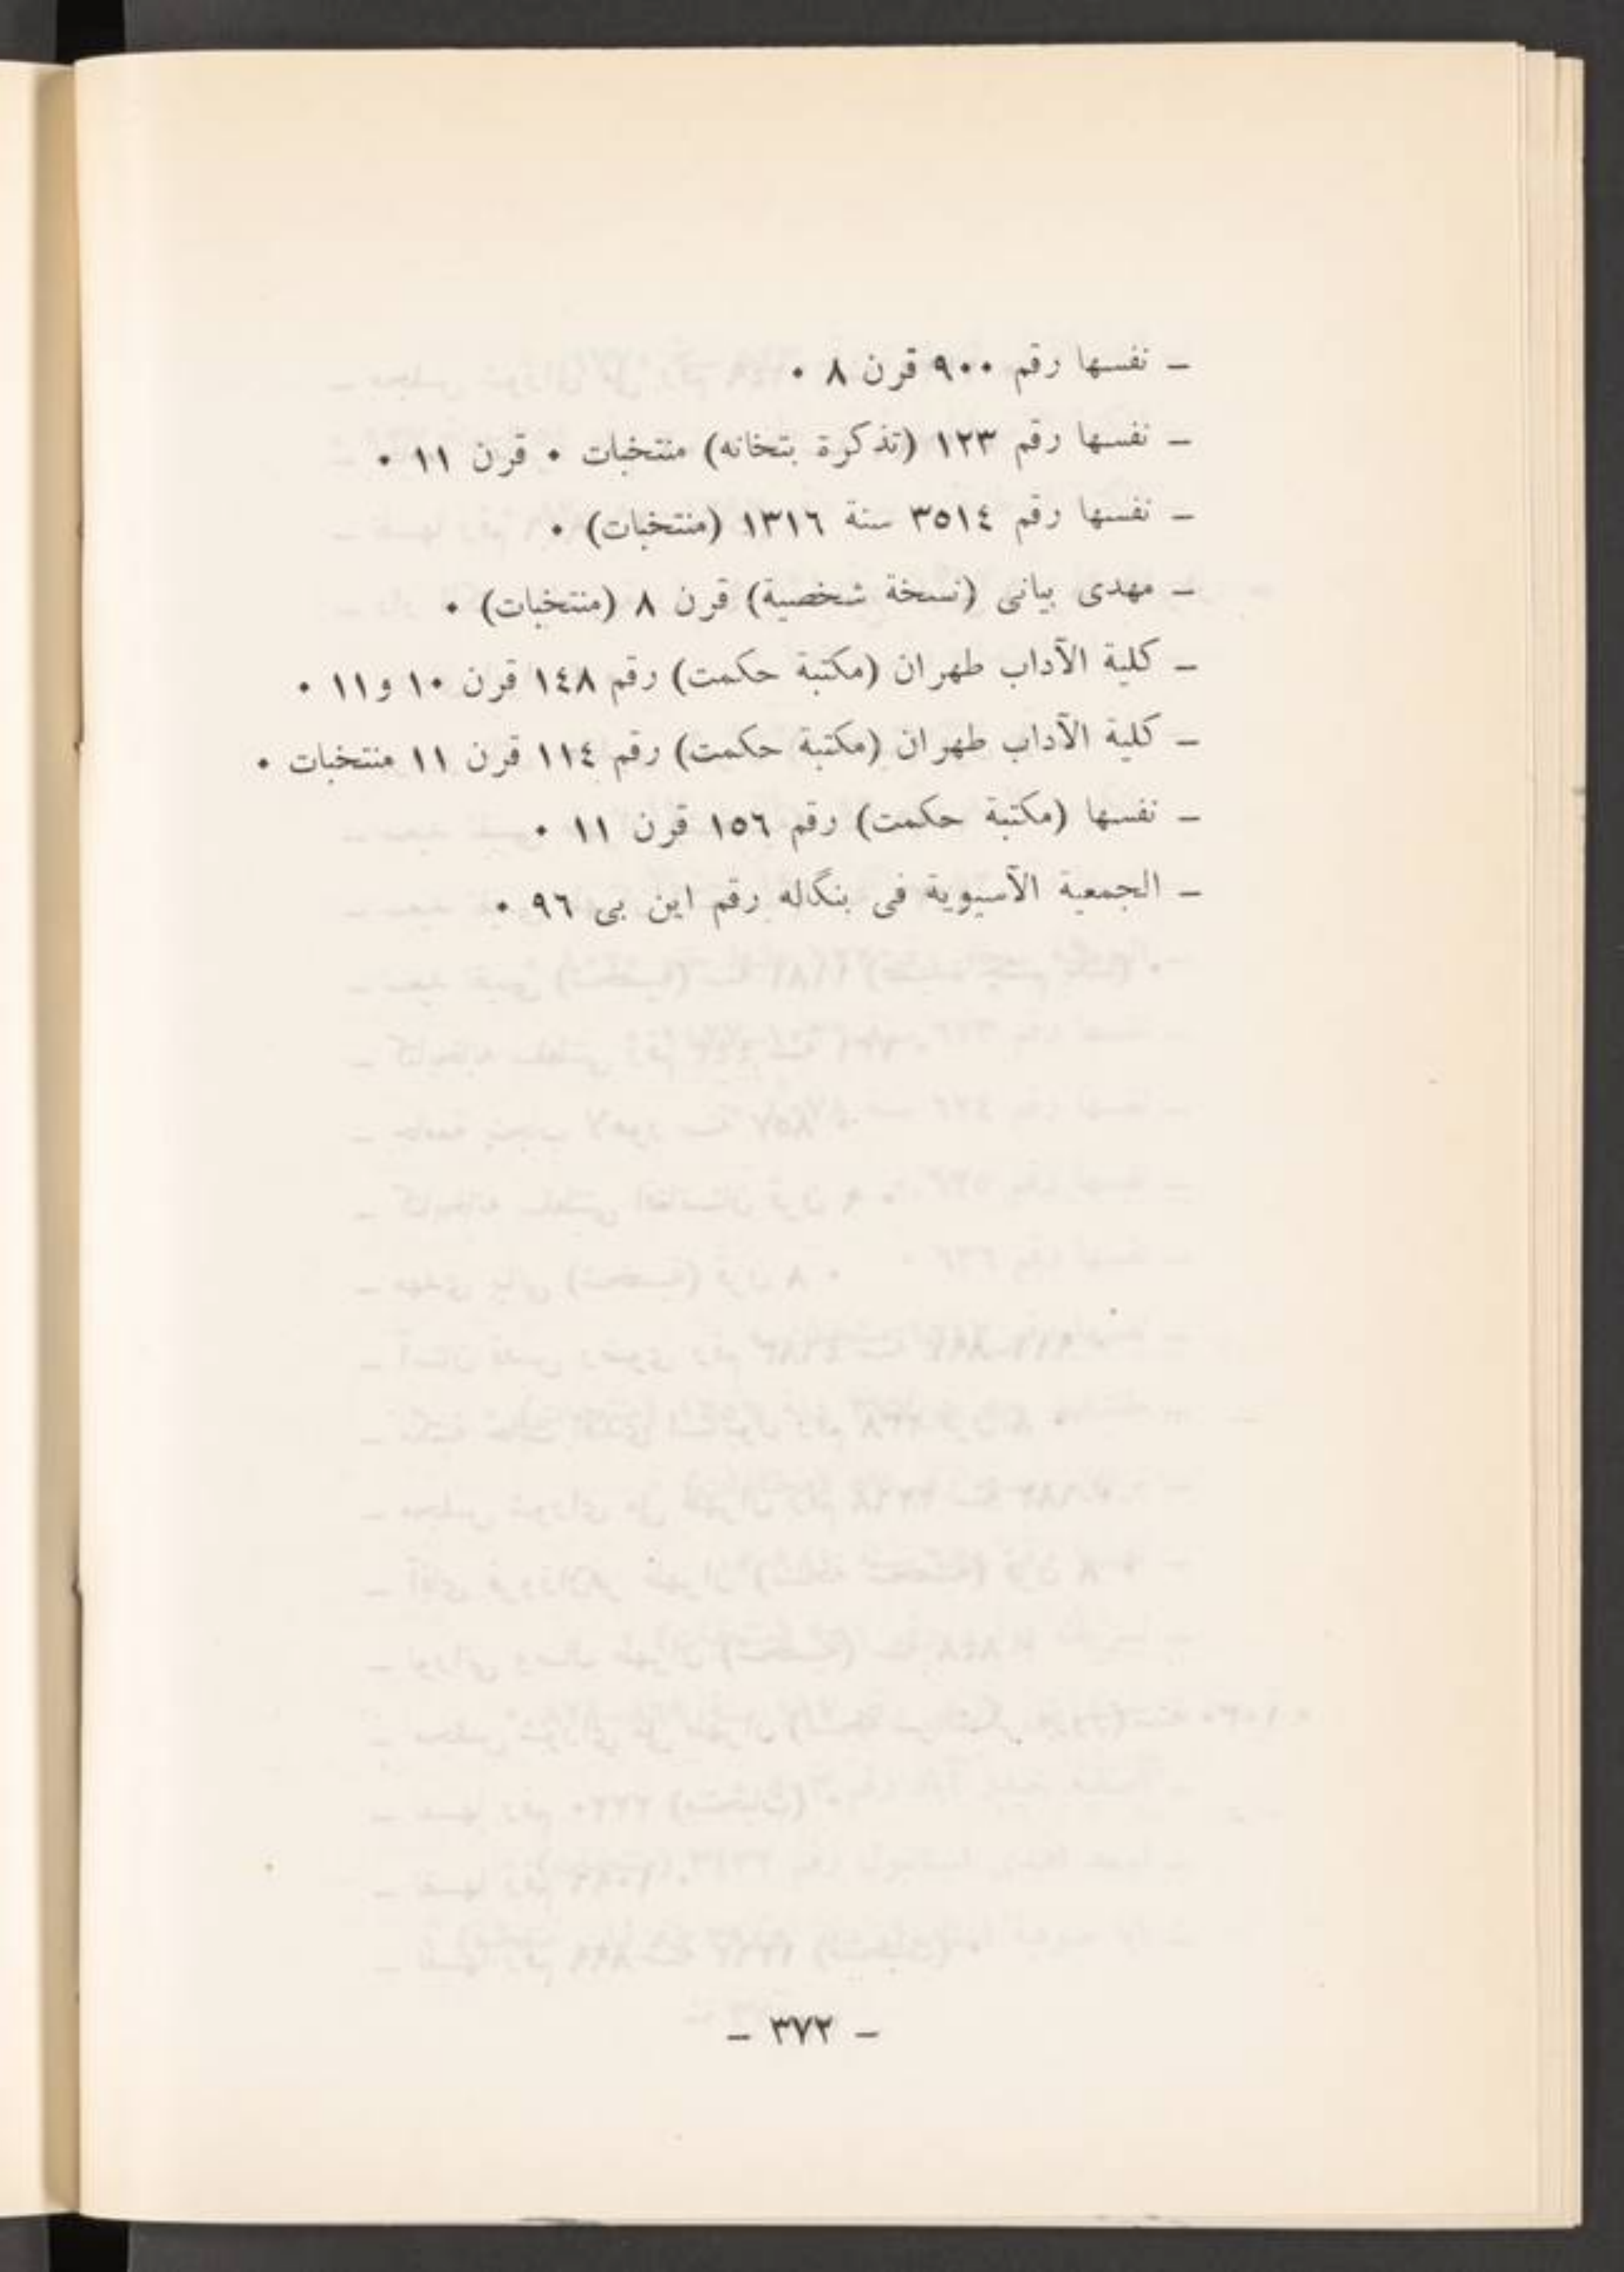 ـ نفسها رقم ٩٠٠ قرن ٨ ٠
ـ نفسها رقم ١٢٣ (تذكرة بتخانه) منتخبات ٠ قرن ١١ ٠
ـ نفسها رقم ٣٥١٤ سنة ١٣١٦ (منتخبات) ٠
ـ مهدى بيانى (نسخة شخصية) قرن ٨ (منتخبات) ٠
ـ كلية الآداب طهران (مكتبة حكمت) رقم ١٤٨ قرن ١٠ و١١ ٠
ـ كلية الآداب طهران (مكتبة حكمت) رقم ١١٤ قرن ١١ منتخبات ٠
ـ نفسها (مكتبة حكمت) رقم ١٥٦ قرن ١١ ٠
ـ الجمعية الآسيوية فى بنگاله رقم اين بى ٩٦ ٠
ـ ٣٧٢ ـ